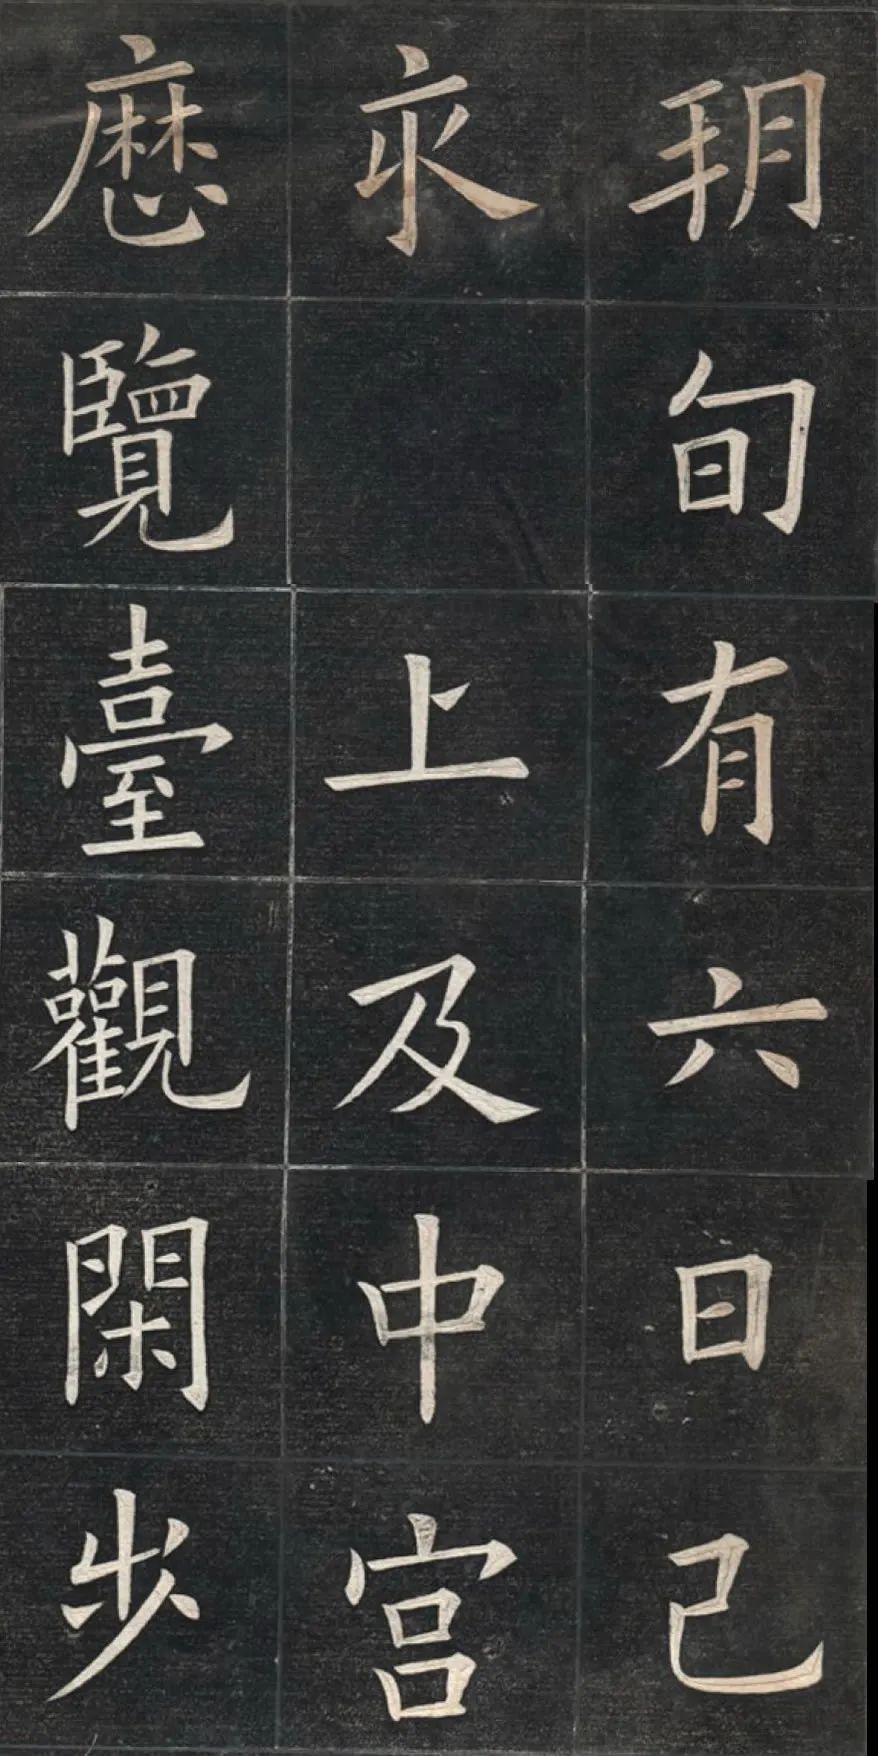 朔旬有六日己
亥 上及中宮
歷覽臺觀閑步